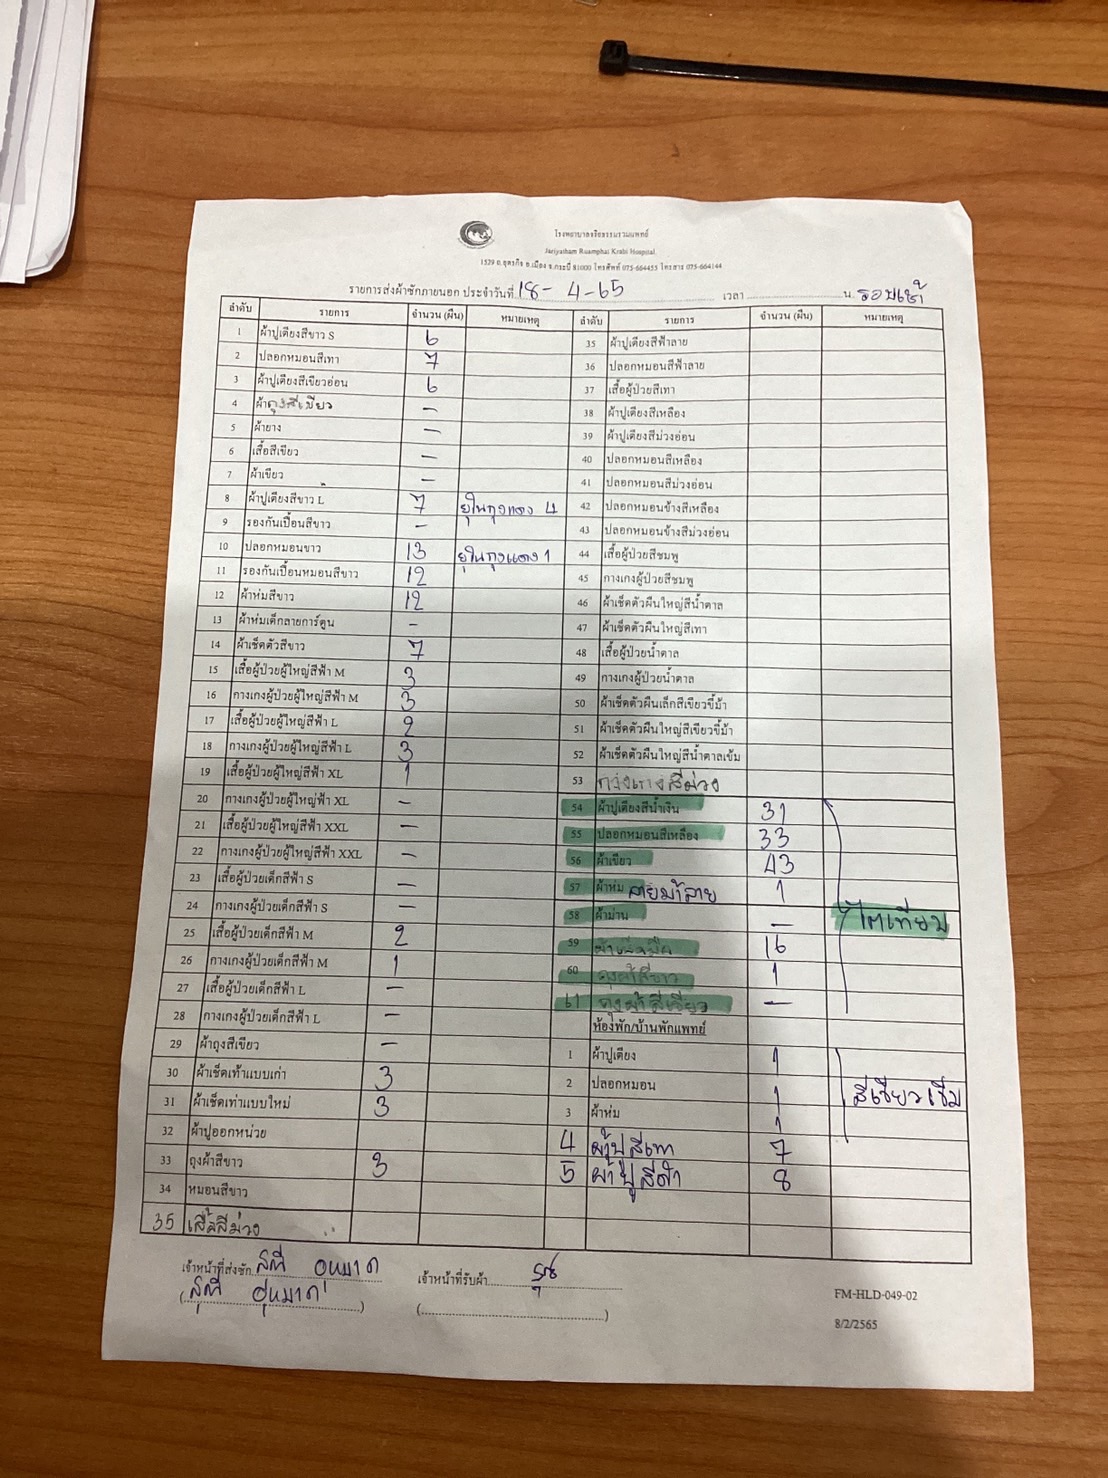 โรงพยาบาลจริยธรรมรวมแพทย์
Jariyatham Ruamphai Krabi Hospital
1529 ถ.อุตรกิจ อ.เมือง จ.กระบี่ 81000 โทรศัพท์ 075-664455 โทรสาร 075-664144
รายการส่งผ้าซักภายนอก ประจำวันที่ 18-4-65 เวลา น. รอบเช้า
ลำดับ รายการ จำนวน (ผืน) หมายเหตุ
1 ผ้าปูเตียงสีขาว S 6
2 ปลอกหมอนสีเทา 7
3 ผ้าปูเตียงสีเขียวอ่อน 6
4 ผ้าถุงสีเขียว -
5 ผ้ายาง -
6 เสื้อสีเขียว -
7 ผ้าเขียว -
8 ผ้าปูเตียงสีขาว L 7 ยุในถุงแดง 4
9 รองกันเปื้อนสีขาว -
10 ปลอกหมอนขาว 13 ยุในถุงแดง 1
11 รองกันเปื้อนหมอนสีขาว 12
12 ผ้าห่มสีขาว 12
13 ผ้าห่มเด็กลายการ์ตูน -
14 ผ้าเช็ดตัวสีขาว 7
15 เสื้อผู้ป่วยผู้ใหญ่สีฟ้า M 3
16 กางเกงผู้ป่วยผู้ใหญ่สีฟ้า M 3
17 เสื้อผู้ป่วยผู้ใหญ่สีฟ้า L 2
18 กางเกงผู้ป่วยผู้ใหญ่สีฟ้า L 3
19 เสื้อผู้ป่วยผู้ใหญ่สีฟ้า XL 1
20 กางเกงผู้ป่วยผู้ใหญ่สีฟ้า XL -
21 เสื้อผู้ป่วยผู้ใหญ่สีฟ้า XXL -
22 กางเกงผู้ป่วยผู้ใหญ่สีฟ้า XXL -
23 เสื้อผู้ป่วยเด็กสีฟ้า S -
24 กางเกงผู้ป่วยเด็กสีฟ้า S -
25 เสื้อผู้ป่วยเด็กสีฟ้า M 2
26 กางเกงผู้ป่วยเด็กสีฟ้า M 1
27 เสื้อผู้ป่วยเด็กสีฟ้า L -
28 กางเกงผู้ป่วยเด็กสีฟ้า L -
29 ผ้าถุงสีเขียว -
30 ผ้าเช็ดเท้าแบบเก่า 3
31 ผ้าเช็ดเท้าแบบใหม่ 3
32 ผ้าปูออกหน่วย
33 ถุงผ้าสีขาว 3
34 หมอนสีขาว
35 เสื้อสีม่วง
ลำดับ รายการ จำนวน (ผืน) หมายเหตุ
35 ผ้าปูเตียงสีฟ้าลาย
36 ปลอกหมอนสีฟ้าลาย
37 เสื้อผู้ป่วยสีเทา
38 ผ้าปูเตียงสีเหลือง
39 ผ้าปูเตียงสีม่วงอ่อน
40 ปลอกหมอนสีเหลือง
41 ปลอกหมอนสีม่วงอ่อน
42 ปลอกหมอนข้างสีเหลือง
43 ปลอกหมอนข้างสีม่วงอ่อน
44 เสื้อผู้ป่วยสีชมพู
45 กางเกงผู้ป่วยสีชมพู
46 ผ้าเช็ดตัวผืนใหญ่สีน้ำตาล
47 ผ้าเช็ดตัวผืนใหญ่สีเทา
48 เสื้อผู้ป่วยน้ำตาล
49 กางเกงผู้ป่วยน้ำตาล
50 ผ้าเช็ดตัวผืนเล็กสีเขียวขี้ม้า
51 ผ้าเช็ดตัวผืนใหญ่สีเขียวขี้ม้า
52 ผ้าเช็ดตัวผืนใหญ่สีน้ำตาลเข้ม
53 กางเกงสีม่วง
54 ผ้าปูเตียงสีน้ำเงิน 31
55 ปลอกหมอนสีเหลือง 33
56 ผ้าเขียว 43
57 ผ้าห่ม ลายม้าลาย 1
58 ผ้าม่าน - ไตเทียม
59 ผ้าเช็ดมือ 16
60 ถุงผ้าสีขาว 1
61 ถุงผ้าสีเขียว -
ห้องพัก/บ้านพักแพทย์
1 ผ้าปูเตียง 1
2 ปลอกหมอน 1 สีเขียวเข้ม
3 ผ้าห่ม 1
4 ผ้าปูสีเทา 7
5 ผ้าปูสีฟ้า 8
เจ้าหน้าที่ส่งซัก
เจ้าหน้าที่รับผ้า
FM-HLD-049-02
8/2/2565